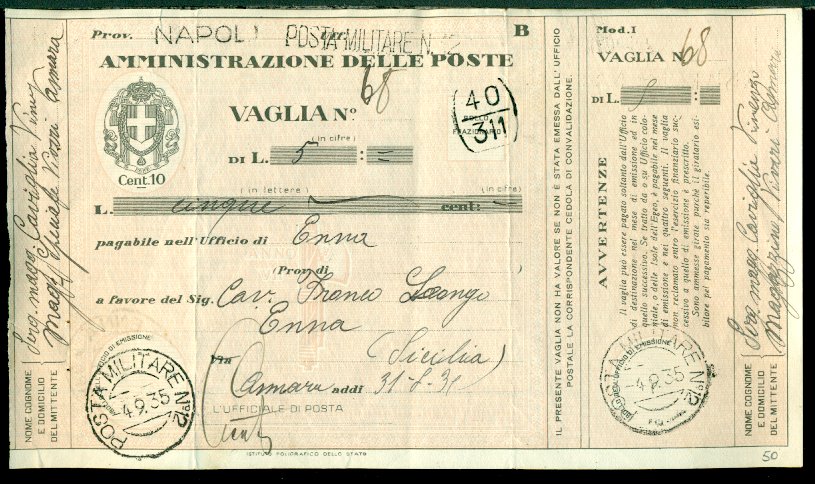 Prov. NAPOLI POSTA MILITARE N. 12 B
AMMINISTRAZIONE DELLE POSTE
68
VAGLIA N.º
40
BOLLO FRAZIONARIO
311
(in cifre)
DI L. 5 : =
Cent. 10
(in lettere) (in cifre)
L. cinque cent: =
pagabile nell'Ufficio di Enna
(Prov. di
a favore del Sig. Cav. Franco
Enna
Via (Sicilia)
Asmara addi
L'UFFICIALE DI POSTA
POSTA MILITARE Nº 12
4.9.35
ISTITUTO POLIGRAFICO DELLO STATO
NOME COGNOME
E DOMICILIO
DEL MITTENTE
Serg. magg. Caviglia
Magg. Asmara
IL PRESENTE VAGLIA NON HA VALORE SE NON È STATA EMESSA DALL'UFFICIO
POSTALE LA CORRISPONDENTE CEDOLA DI CONVALIDAZIONE.
Mod. I
VAGLIA N. 68
DI L. 5
AVVERTENZE
Il vaglia può essere pagato soltanto dall'Ufficio
di destinazione nel mese di emissione ed in
quello successivo. Se tratto da o su Ufficio colo-
niale, o delle Isole dell'Egeo, è pagabile nel mese
di emissione e nei quattro seguenti. Il vaglia
non reclamato entro l'esercizio finanziario suc-
cessivo a quello di emissione è prescritto.
Sono ammesse girate purchè il giratario esi-
bitore pel pagamento sia reperibile.
POSTA MILITARE Nº 12
4.9.35
NOME COGNOME
E DOMICILIO
DEL MITTENTE
Serg. magg. Caviglia
Magazzino Viveri Asmara
50